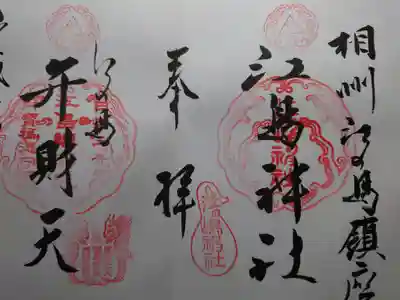 相州江の島鎮座
江島神社
奉拝
江の島
弁財天